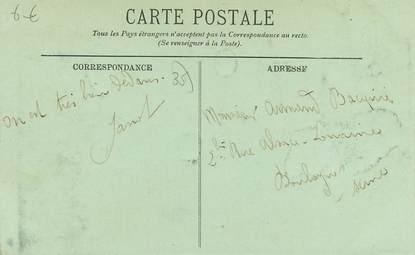 6 €
CARTE POSTALE
Tous les Pays étrangers n'acceptent pas la Correspondance au recto.
(Se renseigner à la Poste).
CORRESPONDANCE
ADRESSE
on est très bien dedans.
Monsieur Armand
Rue Alsace-Lorraine
Boulogne
Seine